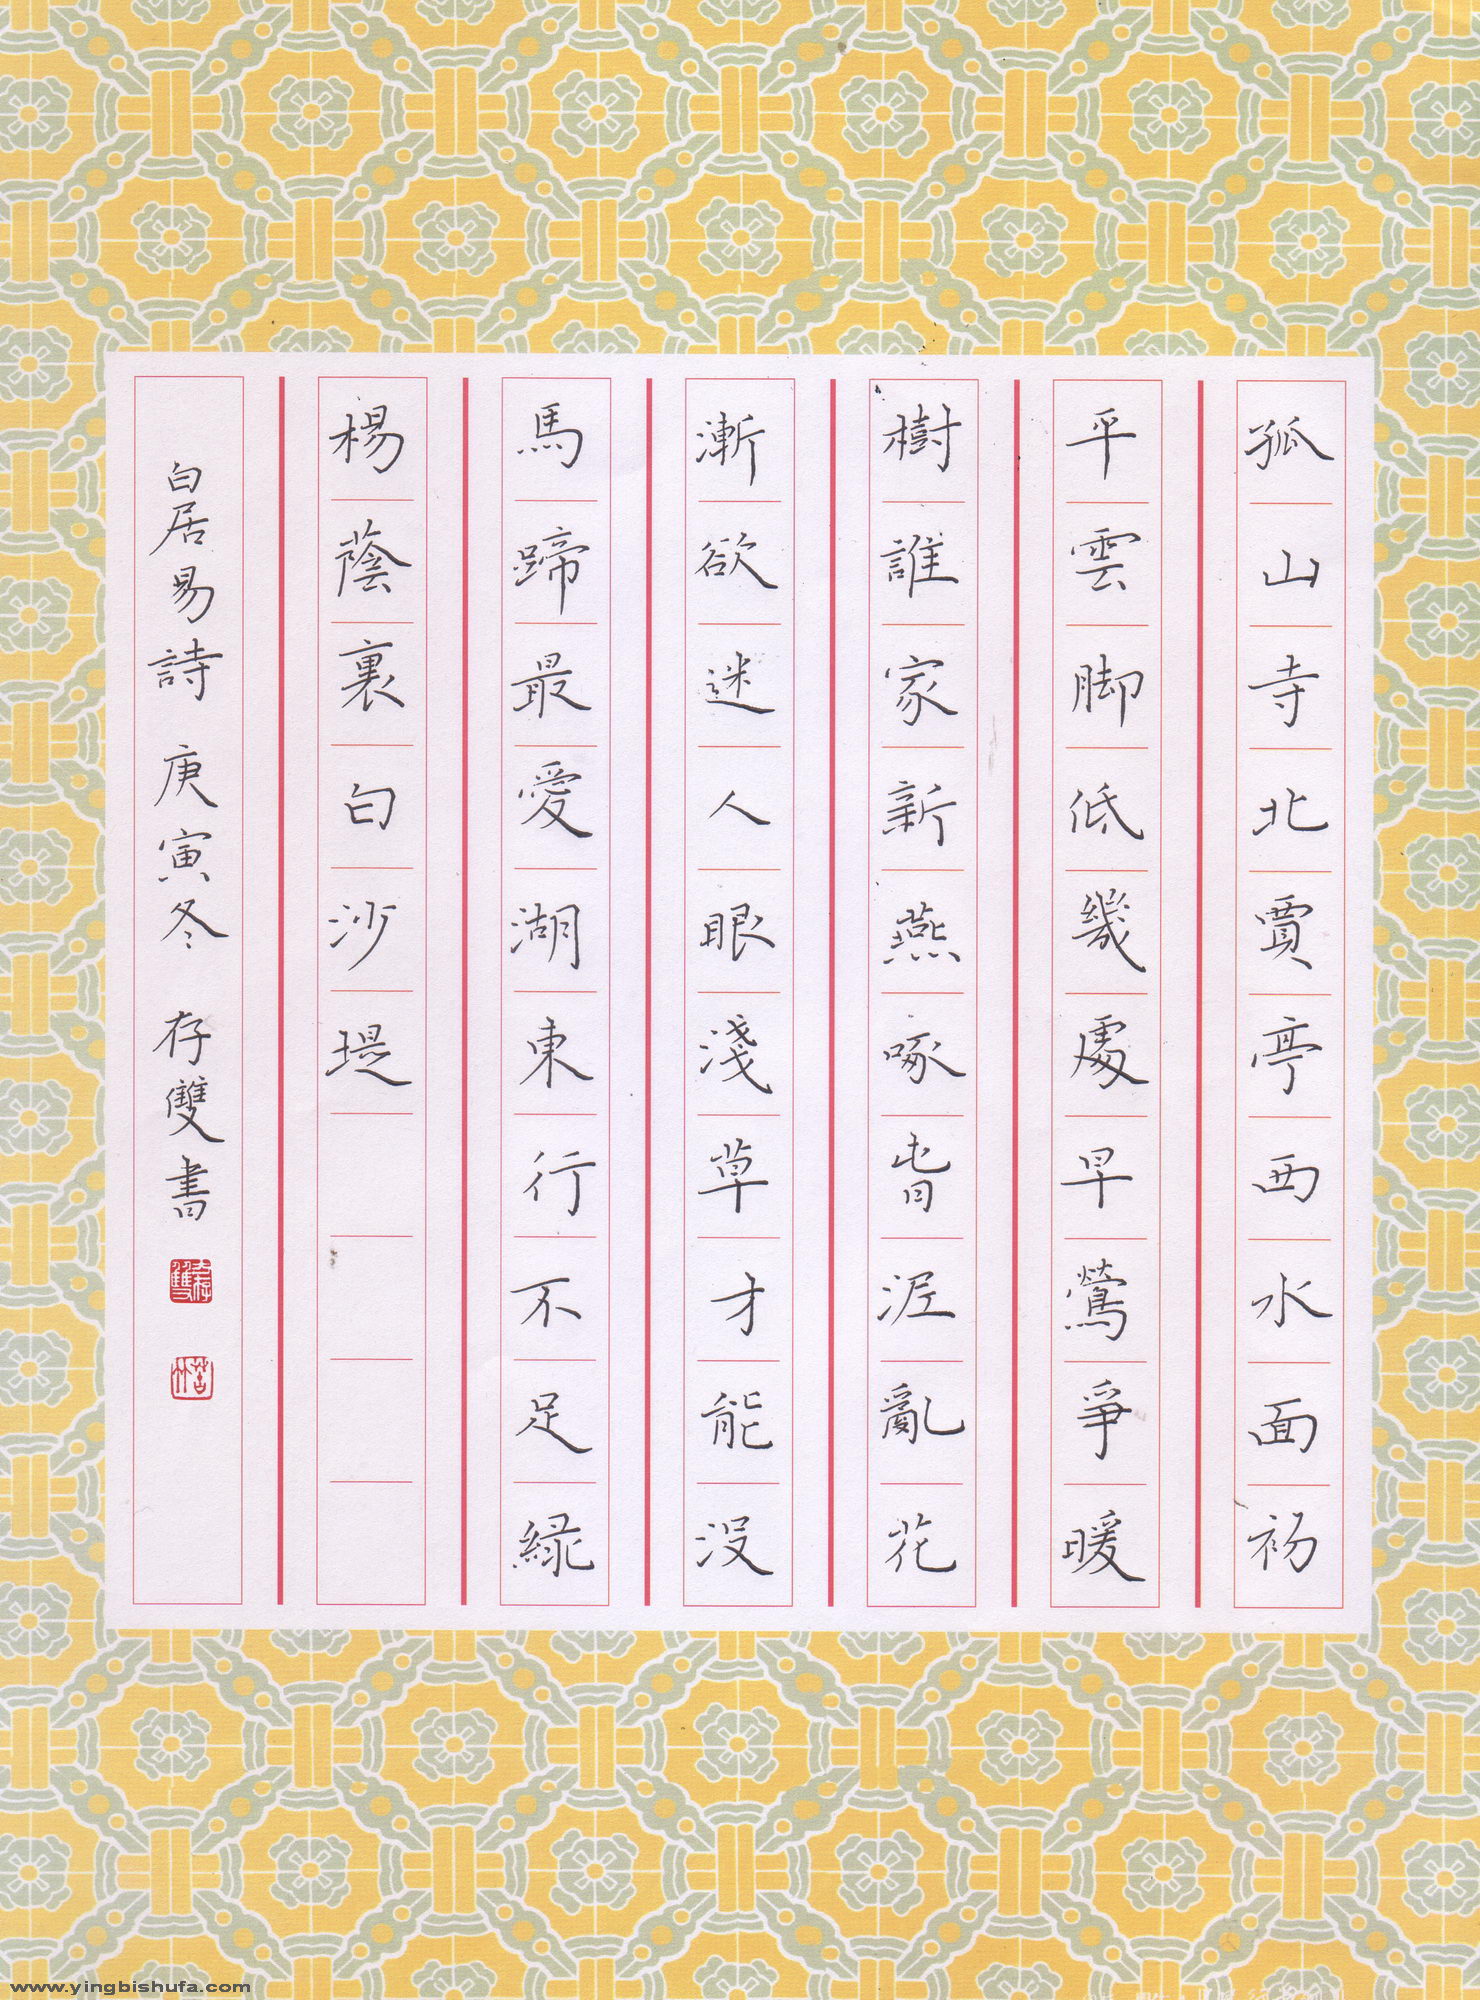 孤山寺北賈亭西水面初
平雲脚低幾處早鶯爭暖
樹誰家新燕啄春泥亂花
漸欲迷人眼淺草才能没
馬蹄最愛湖東行不足綠
楊蔭裏白沙堤
白居易詩 庚寅冬 存雙書
www.yingbishufa.com